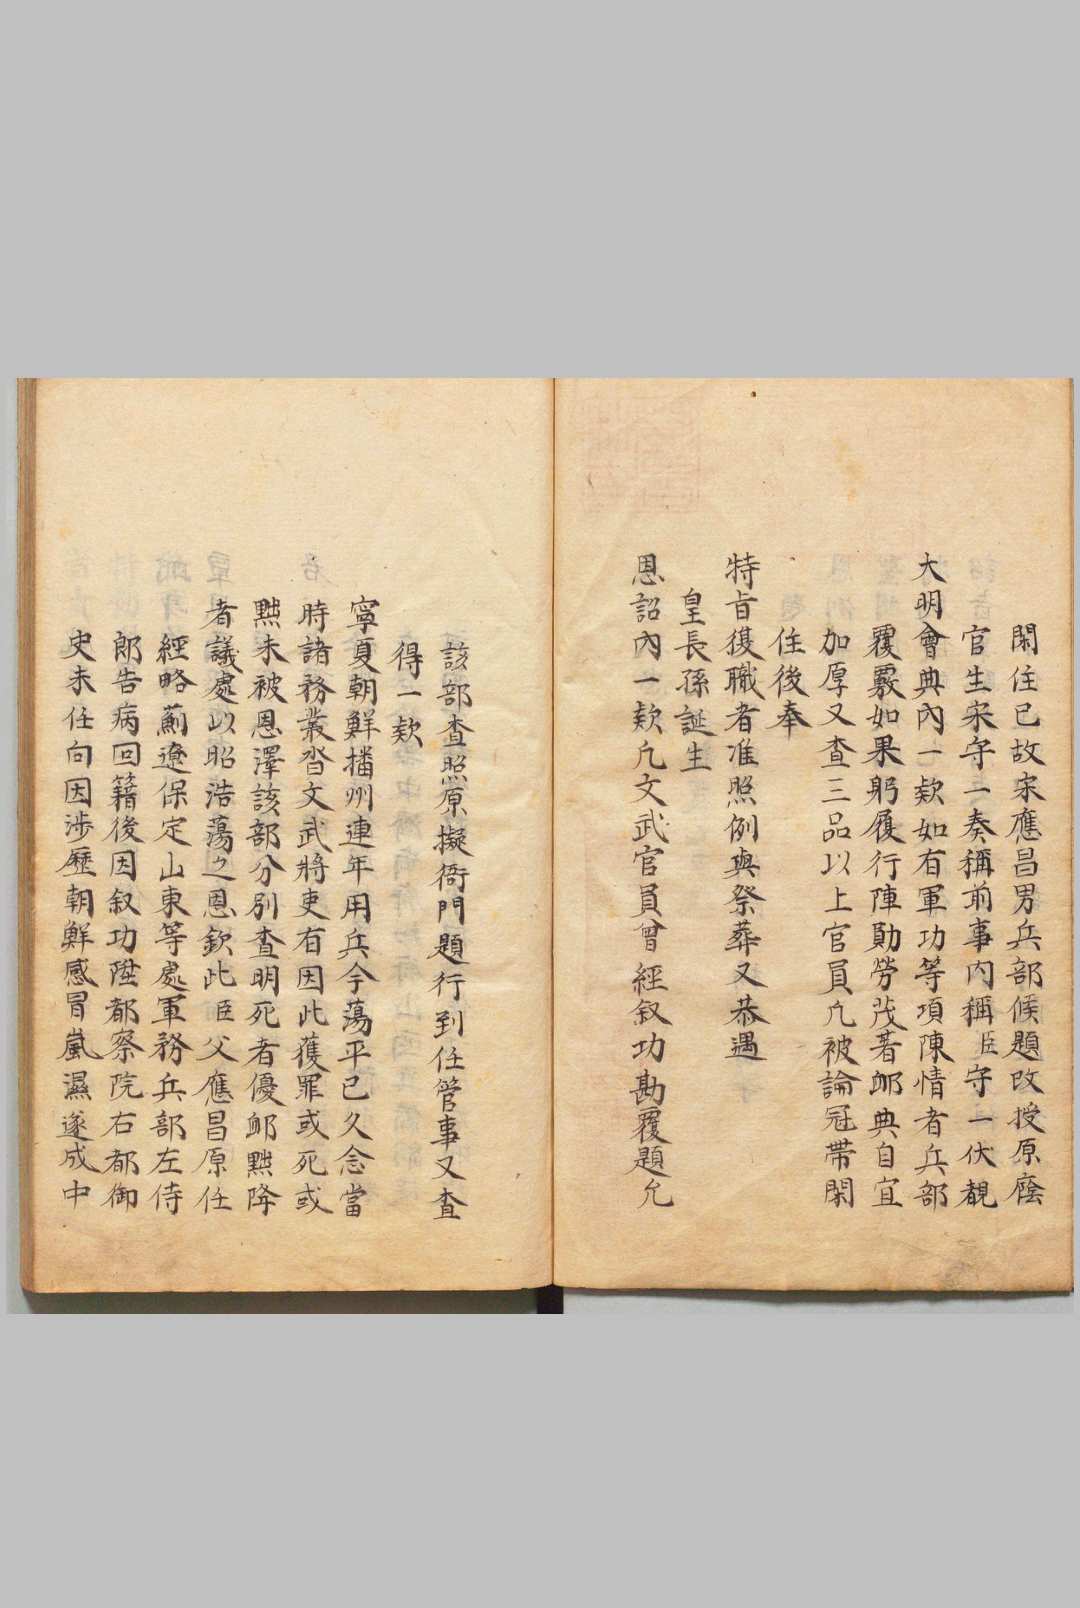 閑住已故宋應昌男兵部候題改授原廕
官生宋守一奏稱前事内稱臣守一伏覩
大明會典内一欵如有軍功等項陳情者兵部
覆覈如果躬履行陣勛勞茂著卹典自宜
加厚又查三品以上官員凢被論冠帶閑
住後奉
特旨復職者准照例與祭葬又恭遇
皇長孫誕生
恩詔内一欵凢文武官員曾經叙功勘覆題允
該部查照原擬衙門題行到任管事又查
得一欵
寧夏朝鮮播州連年用兵今蕩平已久念當
時諸務叢沓文武將吏有因此獲罪或死或
黜未被恩澤該部分别查明死者優卹黜降
者議處以昭浩蕩之恩欽此臣父應昌原任
經略薊遼保定山東等處軍務兵部左侍
郎告病回籍後因叙功陞都察院右都御
史未任向因涉歷朝鮮感冒嵐濕遂成中